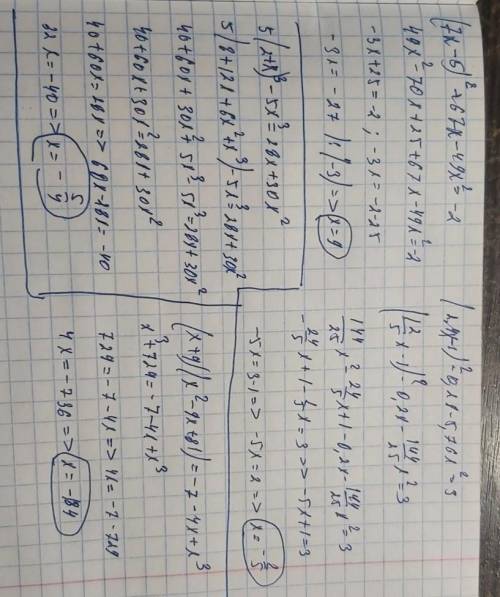 (7x-5)² + 67x - 49x² = -2
49x² - 70x + 25 + 67x - 49x² = -2
-3x + 25 = -2 ; -3x = -2-25
-3x = -27 |:(-3) => x=9
5(2+x)³ - 5x³ = 28x + 30x²
5(8+12x+6x²+x³) - 5x³ = 28x + 30x²
40+60x+30x²+5x³-5x³ = 28x+30x²
40+60x+30x² = 28x+30x²
40+60x = 28x => 60x-28x = -40
32x = -40 => x = -5/4
(2,4x-1)² - 0,2x - 5,76x² = 3
(12/5 x - 1)² - 0,2x - 144/25 x² = 3
144/25 x² - 24/5 x + 1 - 0,2x - 144/25 x² = 3
-24/5 x + 1 - 1/5 x = 3 => -5x+1=3
-5x = 3-1 => -5x = 2 => x = -2/5
(x+9)(x²-9x+81) = -7-4x+x³
x³ + 729 = -7-4x+x³
729 = -7-4x => 4x = -7-729
4x = -736 => x = -184